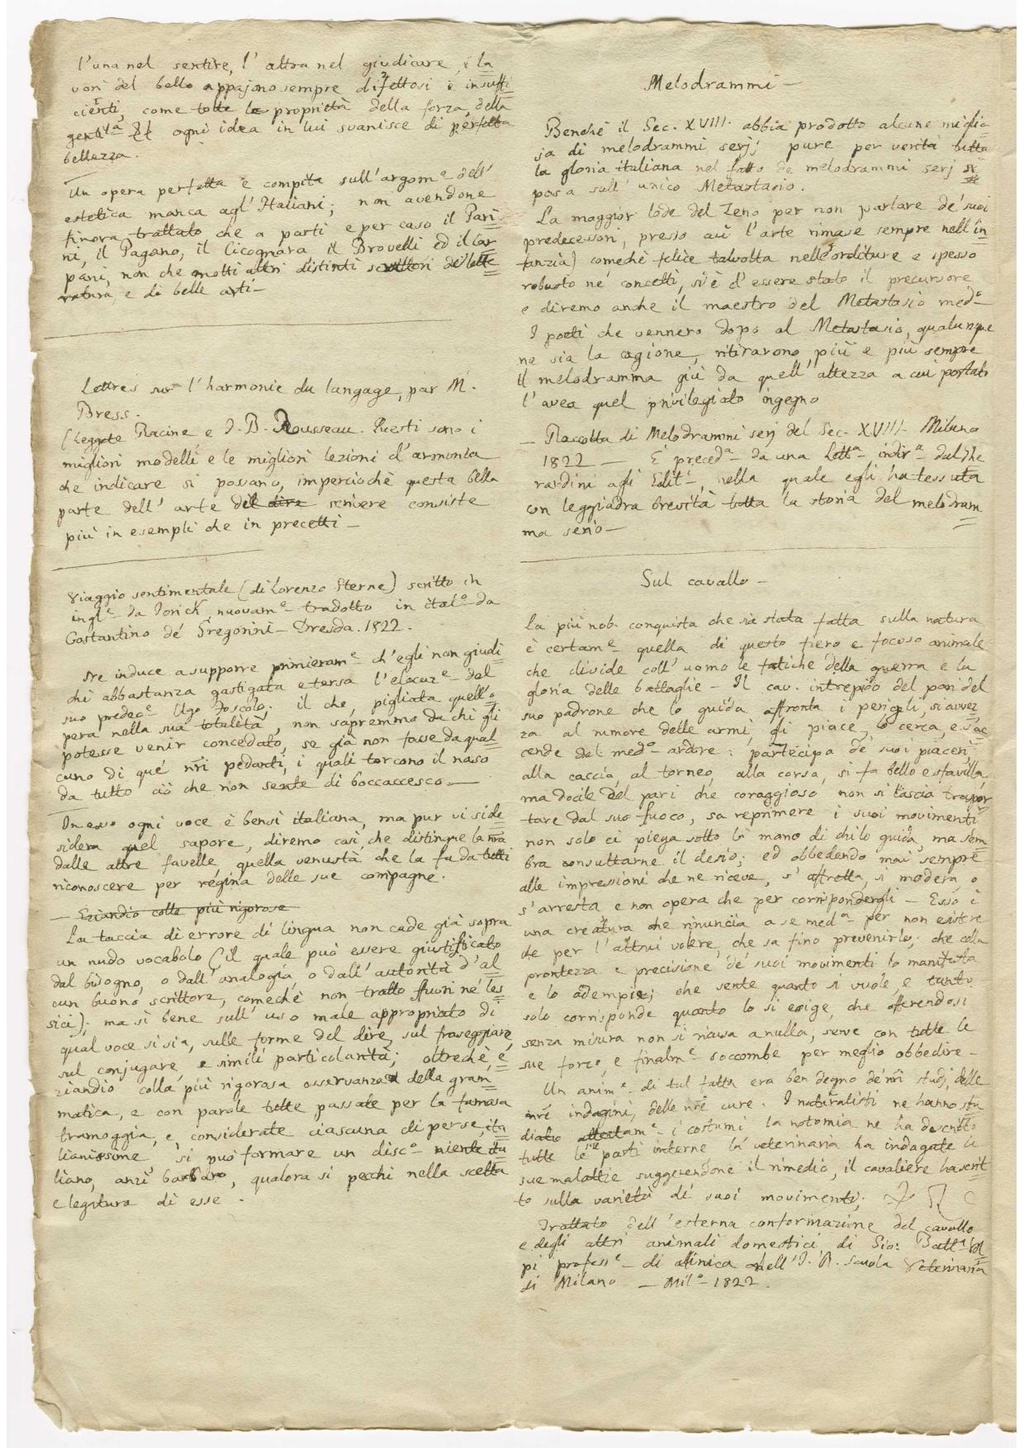 l'una nel sentire, l'altra nel giudicare, i la
vori del bello appajono sempre difettosi e insuffi
cienti, come tolte le proprietà della forza, della
gentil.ª ogni idea in lui svanisce di perfetta
bellezza.
Un opera perfetta e compita sull'argom.e dell'
estetica manca agl'Italiani; non avendone
finora trattato che a parti e per caso il Pari
ni, il Pagano, il Cicognara il Brovelli ed il Car
pani, non che molti altri distinti scrittori di lette
ratura, e di belle arti—
Lettres sur l'harmonie du langage, par M.
Bress.
(Leggete Racine e J. B. Rousseau. Questi sono i
migliori modelli e le migliori lezioni d'armonia
che indicare si possano, imperciochè questa bella
parte dell'arte del dire scrivere consiste
più in esempli che in precetti—
Viaggio sentimentale (di Lorenzo Sterne) scritto in
ingl.e da Yorick, nuovam.e tradotto in ital.o da
Costantino de' Gregorini— Dresda. 1822.
ne induce a supporre primieram.e ch'egli non giudi
chi abbastanza gastigata e tersa l'elocuz.e del
suo predec.e Ugo Foscolo; il che, pigliata quell'o
pera nella sua totalità, non sapremmo da chi gli
potesse venir concedato, se già non fosse da qual
cuno di que' nri pedanti, i quali torcono il naso
da tutto ciò che non sente di boccaccesco.—
In esso ogni voce è bensì italiana, ma pur vi side
sidera quel sapore, diremo così, che distingue la nra
dalle altre favelle, quella venustà che la fa da tutti
riconoscere per regina delle sue compagne.
— Eziandio colle più rigorose
La taccia di errore di lingua non cade già sopra
un nudo vocabolo (il quale può essere giustificato
dal bisogno, o dall'analogia, o dall'autorità d'al
cun buono scrittore, comechè non tratto fuori ne' les
sici); ma sì bene sull'uso male appropriato di
qual voce si sia, sulle forme del dire, sul fraseggiare,
sul conjugare, e simili particolarità; oltrechè, e
ziandio colla più rigorosa osservanza della gram
matica, e con parole tutte passate per la famosa
tramoggia, e considerate ciascuna di per se, ita
lianissime si può formare un disc.o niente ita
liano, anzi barbaro, qualora si pecchi nella scelta
e legatura di esse.
Melodrammi—
Benchè il Sec. XVIII. abbia prodotto alcune miglia
ja di melodrammi serj; pure per verità tutta
la gloria italiana nel fatto de' melodrammi serj si
posa sull'unico Metastasio.
La maggior lode del Zeno per non parlare de' suoi
predecessori, presso cui l'arte rimase sempre nell'in
fanzia) comechè felice talvolta nelle orditure e spesso
robusto ne' concetti, si è d'essere stato il precursore,
e diremo anche il maestro del Metastasio med.o
I poeti che vennero dopo al Metastasio, qualunque
ne sia la cagione, ritirarono più e più sempre
il melodramma giù da quell'altezza a cui portato
l'avea quel privilegiato ingegno
— Raccolta di Melodrammi serj del Sec. XVIII— Milano
1822 — E' preced.ª da una Lett.ª indir.ª dal Ghe
rardini agli Edit.i, nella quale egli ha tessuta
con leggiadra brevità tutta la storia del melodram
ma serio—
Sul cavallo—
La più nob. conquista che sia stata fatta sulla natura
è certam.e quella di questo fiero e focoso animale
che divide coll'uomo le fatiche della guerra e la
gloria delle battaglie— Il cav. intrepido del pari del
suo padrone che lo guida affronta i pericoli, si avvez
za al rumore delle armi, gli piace, lo cerca, e s'ac
cende del med.o ardire: partecipa de' suoi piaceri,
alla caccia, al torneo, alla corsa, si fa bello e sfavilla,
ma docile del pari che coraggioso non si lascia traspor
tare dal suo fuoco, sa reprimere i suoi movimenti
non solo ei piega sotto la mano di chi lo guida, ma sem
bra consultarne il desio; ed obbedendo mai sempre
alle impressioni che ne riceve, s'affretta, si modera o
s'arresta e non opera che per corrispondergli— Esso è
una creatura che rinuncia a se med.ª per non esistere
che per l'altrui volere, che sa fino prevenirlo; che colla
prontezza e precisione de' suoi movimenti lo manifesta
e lo adempie; che sente quanto si vuole, e tanto
solo corrisponde quanto lo si esige, che offerendosi
senza misura non si ricusa a nulla, serve con tutte le
sue forze, e finalm.e soccombe per meglio obbedire—
Un anim.e di tal fatta era ben degno de' nri studj, delle
nre indagini, delle nre cure. I naturalisti ne hanno stu
diato attentam.e i costumi la notomia ne ha descritto
tutte le parti interne la veterinaria ha indagate le
sue malattie suggerendone il rimedio, il cavaliere ha scrit
to sulla varietà di suoi movimenti;
Trattato dell'esterna conformazione del cavallo
e degli altri animali domestici, di Gio: Batt.ª Vol
pi profess.e di clinica nell'I. R. scuola Veterinaria
di Milano— Mil.o 1822.